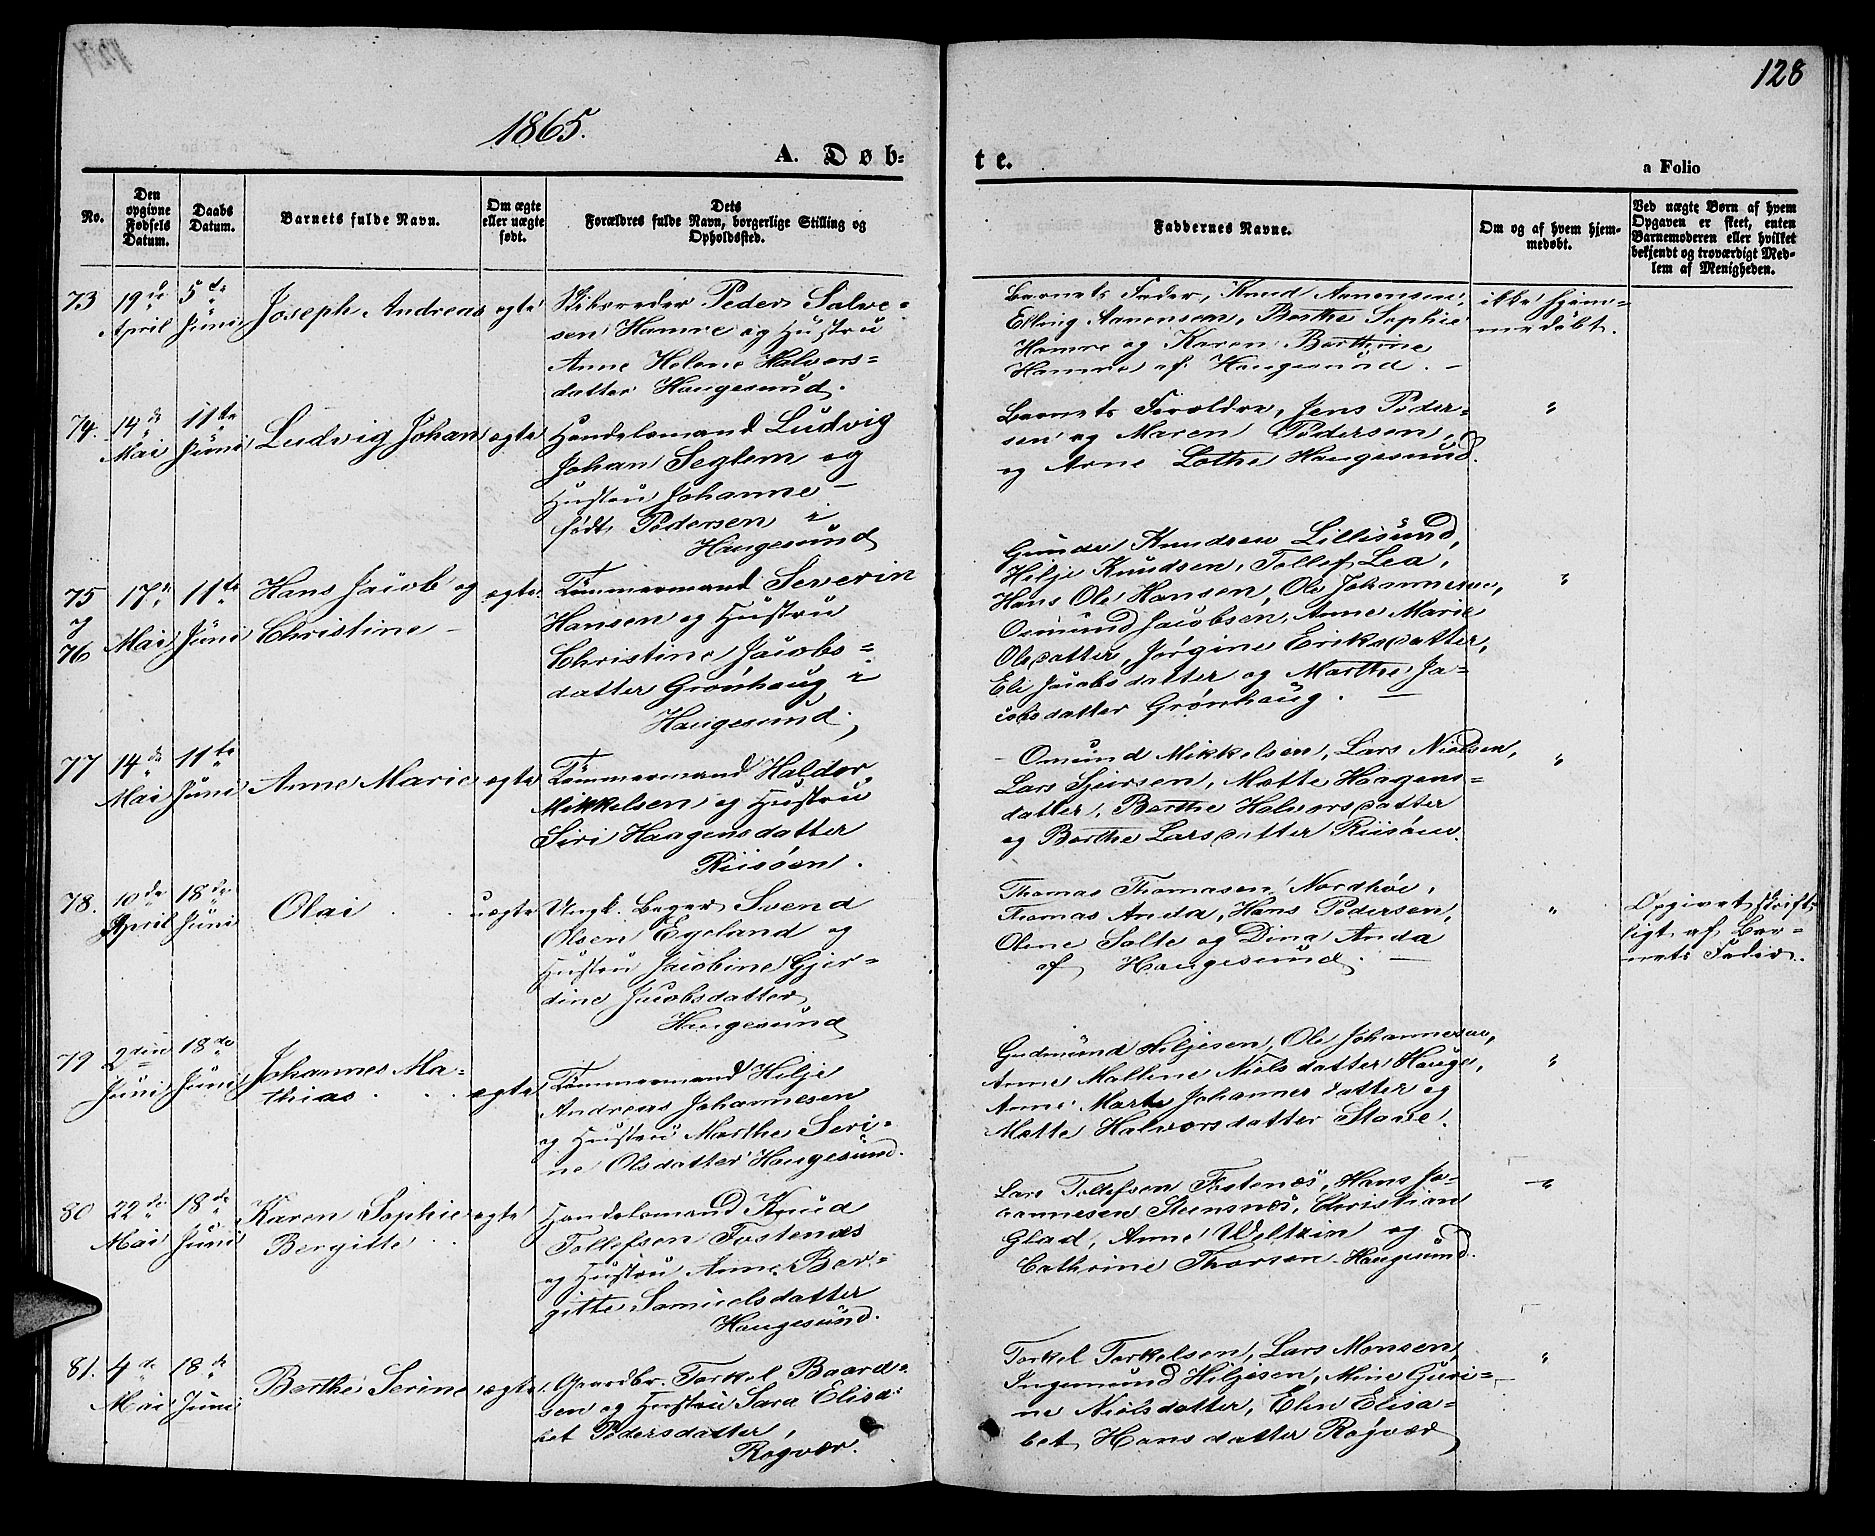 128
1865.
A. Døb-
te.
a Folio
No.
Den opgivne Fødsels Datum.
Daabs Datum.
Barnets fulde Navn.
Om ægte eller uægte født.
Dets Forældres fulde Navn, borgerlige Stilling og Opholdssted.
Faddernes Navne.
Om og af hvem hjem-
medøbt.
Ved uægte Børn af hvem
Opgaven er skeet, enten
Barnemoderen eller hvilket
bekjendt og troværdigt Med-
lem af Menigheden.
73
19de April
5te Juni
Joseph Andreas
ægte
Skibsreder Peder Salve-
sen Hamre og Hustru
Anne Helene Halvors-
datter Haugesund.
Barnets Fader, Knud Aanensen,
Elling Aanensen, Berthe Sophie
Hamre og Karen Berthine
Hamre af Haugesund. -
ikke hjem-
medøbt.
74.
14de Mai
11te Juni
Ludvig Johan
ægte
Handelsmand Ludvig
Johan Seglem og
Hustru Johanne -
født Pedersen i
Haugesund
Barnets Forældre, Jens Peder-
sen og Maren Pedersen,
og Arne Lothe Haugesund.
"
75
og
76
17de Mai
11te Juni
Hans Jacob og
Christine -
ægte
Tømmermand Severin
Hansen og Hustru
Christine Jacobs-
datter Grønhaug i
Haugesund.
Gunder Knudsen Lillesund,
Hilje Knudsen, Tollef Lea,
Hans Ole Hansen, Ole Johannesen,
Osmund Jacobsen, Anne Marie
Olsdatter, Jørgine Eriksdatter,
Eli Jacobsdatter og Marthe Ja-
cobsdatter Grønhaug. -
"
77
14de Mai
11te Juni
Anne Marie
ægte
Tømmermand Haldor
Mikkelsen og Hustru
Siri Haagensdatter
Riisøen.
- Omund Mikkelsen, Lars Nielsen,
Lars Sjursen, Mette Haagens-
datter, Berthe Halvorsdatter
og Berthe Larsdatter Riisøen.
"
78.
10de April
18de Juni
Olai
uægte
Ungk. Bager Svend
Olsen Egeland og
Hustru Jacobine Gjer-
dine Jacobsdatter
Haugesund
Thomas Thomasen Nordhøi,
Thomas Anda, Hans Pedersen,
Olene Salte og Dina Anda
af Haugesund. -
"
Opgivet skrift-
ligt af Bar-
nets Fader.
79
2den Juni
18de Juni
Johannes Ma-
thias
ægte
Tømmermand Hilje
Andreas Johannesen
og Hustru Marthe Seri-
ne Olsdatter Haugesund.
Gudmund Hiljesen, Ole Johannesen,
Anne Malline Nielsdatter Hauge,
Anne Marte Johannesdatter og
Mette Halvorsdatter Stave.
"
80
22de Mai
18de Juni
Karen Sophie
Bergitte
ægte
Handelsmand Knud
Tollefsen Fostenæs
og Hustru Anne Ber-
gitte Samuelsdatter
Haugesund.
Lars Tollefsen Fostenæs, Hans Jo-
hannesen Steensnæs, Christian
Glad, Anne Weltzin og
Cathrine Thorsen Haugesund.
"
81.
4de Mai
18de Juni
Berthe Serine
ægte
Gaardbr. Torkel Baard-
sen og Hustru Sara Elisa-
bet Pedersdatter,
Røgvær.
Torkel Torkelsen, Lars Monsen
Ingemund Hiljesen, Mine Guri-
ne Nielsdatter, Elen Elisa-
bet Hansdatter Røgvær
"